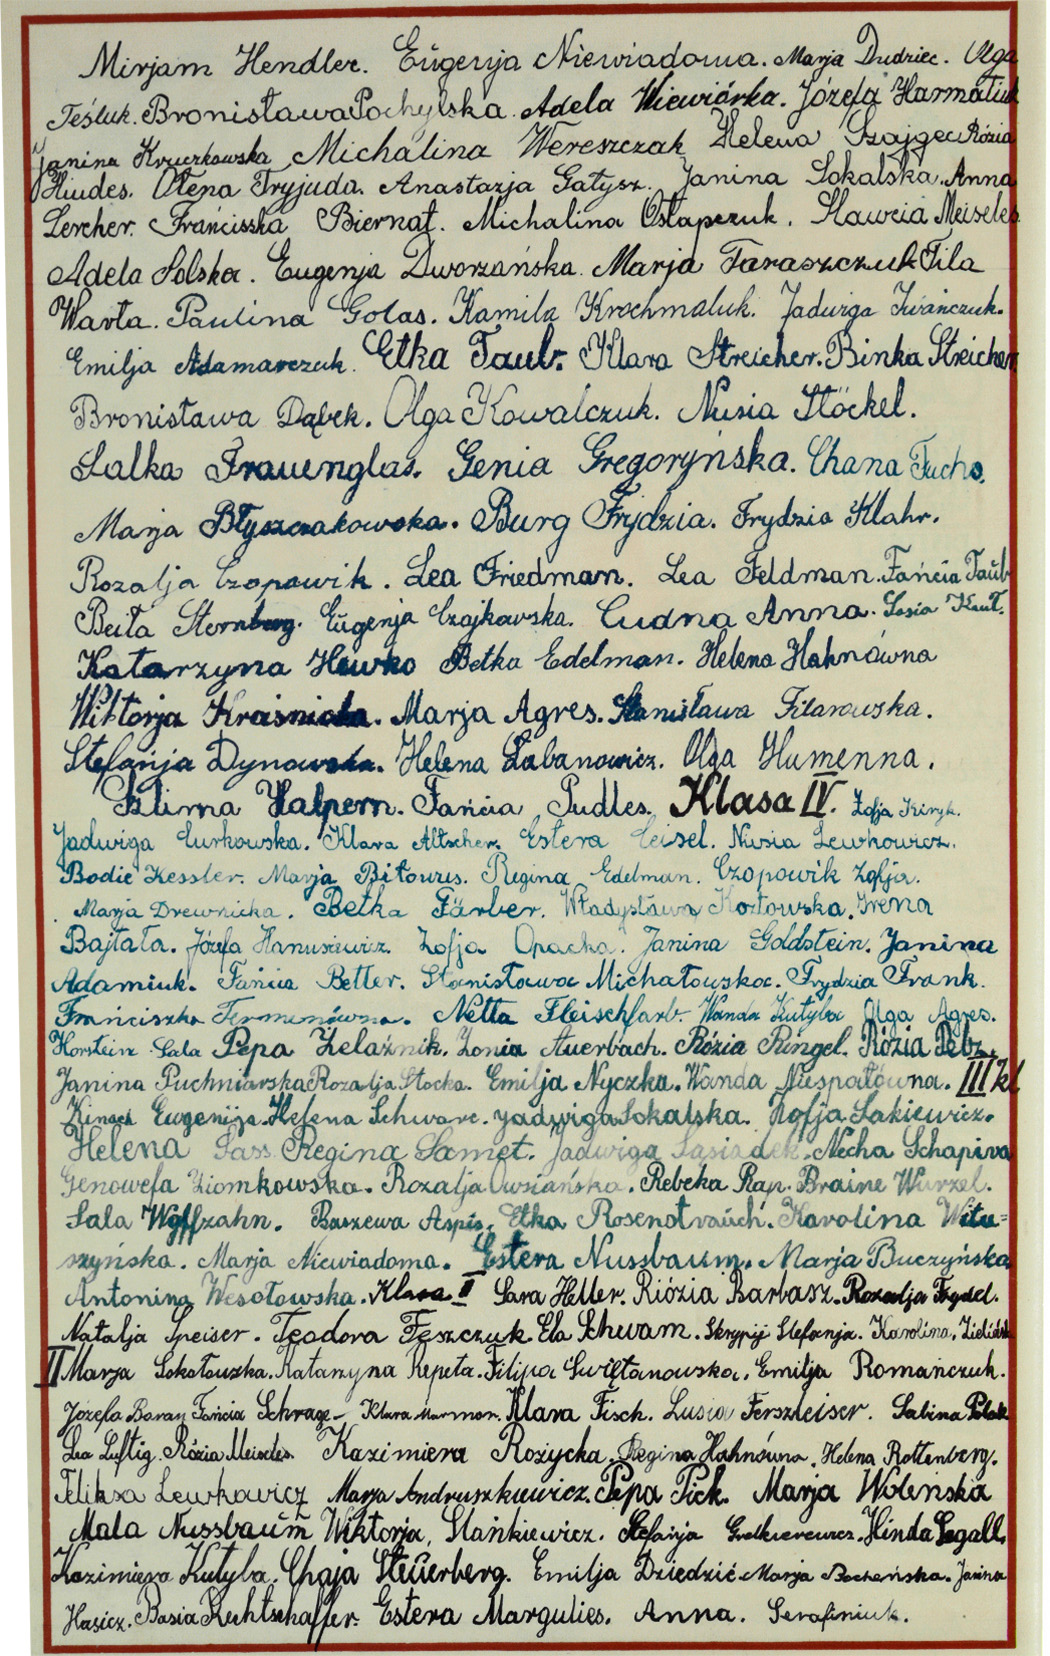 Mirjam Hendler. Eugenja Niewiadowa. Marja Dudziec. Olga
Teśluk. Bronisława Pochylska. Adela Wiewiórka. Józefa Harmatiuk
Janina Kruczkowska Michalina Wereszczak Helena Szajgec Rózia
Hindes. Olena Tryjuda. Anastazja Gatysz. Janina Sokalska. Anna
Lercher. Franciszka Biernat. Michalina Ostapczuk. Sławcia Meiseles
Adela Solska. Eugenja Dworzańska. Marja Taraszczuk Tila
Warta. Paulina Golas. Kamila Krochmaluk. Jadwiga Iwańczuk.
Emilja Adamarczuk. Etka Taub. Klara Streicher. Binka Streicher.
Bronisława Dąbek. Olga Kowalczuk. Nusia Stöckel.
Salka Frauenglas. Genia Gregoryńska. Chana Fuchs.
Marja Błyszczakowska. Burg Frydzia. Frydzia Klahr.
Rozalja Czopowik. Lea Friedman. Lea Feldman. Fańcia Taub
Beila Sternberg. Eugenja Czajkowska. Cudna Anna. Sosia Kaut.
Katarzyna Hewko Betka Edelman. Helena Hahnówna
Wiktorja Kraśnicka. Marja Agres. Stanisława Filarowska.
Stefanja Dynowska. Helena Łabanowicz. Olga Humenna.
Blima Halpern. Fańcia Pudles. Klasa IV. Zofja Kiryk.
Jadwiga Curkowska. Klara Altscher. Estera Ceisel. Nusia Lewkowicz.
Bodie Kessler. Marja Bitowis. Regina Edelman. Czopowik Zofja.
Marja Drewnicka. Betka Färber. Władysława Kozłowska. Irena
Bajtała. Józefa Hanusiewicz. Zofja Opacka. Janina Goldstein. Janina
Adamiuk. Fańcia Betler. Stanisława Michałowska. Frydzia Frank.
Franciszka Termenówna. Netta Fleischfarb. Wanda Kutyba Olga Agres.
Hornstein Sala Pepa Żelaźnik. Zonia Auerbach. Rózia Ringel. Rózia Rebz.
Janina Puchniarska Rozalja Stocka. Emilja Nyczka. Wanda Niespałówna. III kl
Kinach Eugenija. Helena Schwarc. Jadwiga Sokalska. Zofja Sakiewicz.
Helena Sass Regina Samet. Jadwiga Sąsiadek. Necha Schapira
Genowefa Ziomkowska. Rozalja Owsiańska. Rebeka Rap. Braine Wurzel.
Sala Wolfzahn. Baszewa Aspis. Etka Rosenstrauch. Karolina Witu=
szyńska. Marja Niewiadoma. Estera Nussbaum. Marja Buczyńska
Antonina Wesołowska. Klasa II Sara Heller. Rióżia Barbasz. Rozalja Frydel.
Natalja Speiser. Teodora Feszczuk. Ela Schwam. Skrypij Stefanja. Karolina, Zielińska
II Marja Sokołowska. Katarzyna Repeta. Filipa Świętanowska. Emilja Romańczuk.
Józefa Baran Fańcia Schrage. Klara Marmor. Klara Fisch. Lusia Ferszleiser. Sabina Polak
Lea Luftig. Rózia Meiseles. Kazimiera Rożycka. Regina Hahnówna. Helena Rottenberg.
Feliksa Lewkowicz Marja Andruszkiewicz. Pepa Pick. Marja Woleńska
Mala Nussbaum Wiktorja, Stańkiewicz. Stefanja Hinda Segall.
Kazimiera Kutyba. Chaja Steuerberg. Emilja Dziedzić Marja Bocheńska. Janina
Hasicz. Basia Rechtschaffer. Estera Margulies. Anna. Serafiniuk.